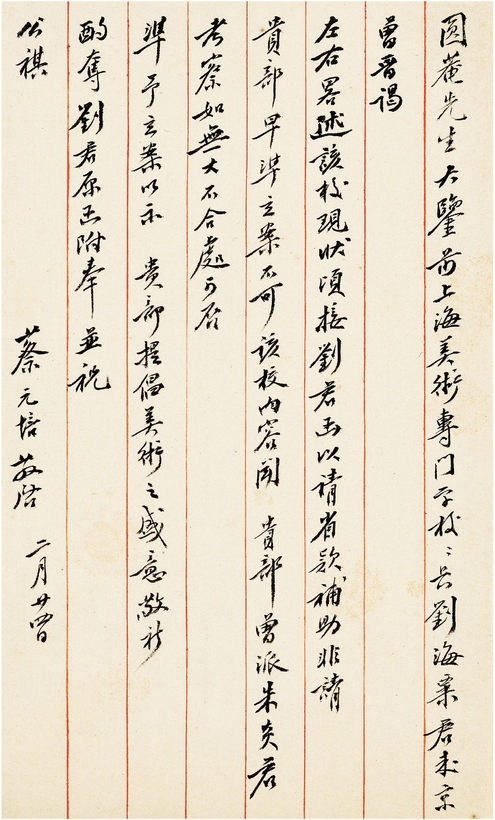 圓菴先生大鑒前上海美術專門學校〻長劉海粟君來京
曾晋謁
左右畧述該校現狀頃接劉君函以請省款補助非請
貴部早準立案不可該校內容聞 貴部曾派朱炎君
考察如無大不合處可否
準予立案以示 貴部提倡美術之盛意敬祈
酌奪劉君原函附奉並祝
公祺
蔡元培敬啓 二月廿四日